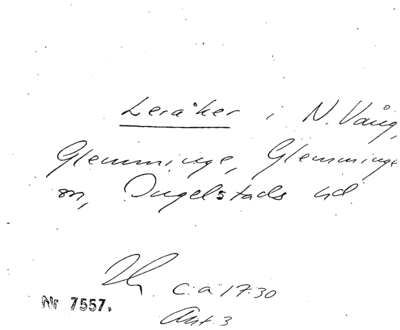 Leråker i N. Vång,
Glemminge, Glemminge
sn, Ingelstads hd
c:a 1730
Ant. 3
Nr 7557.